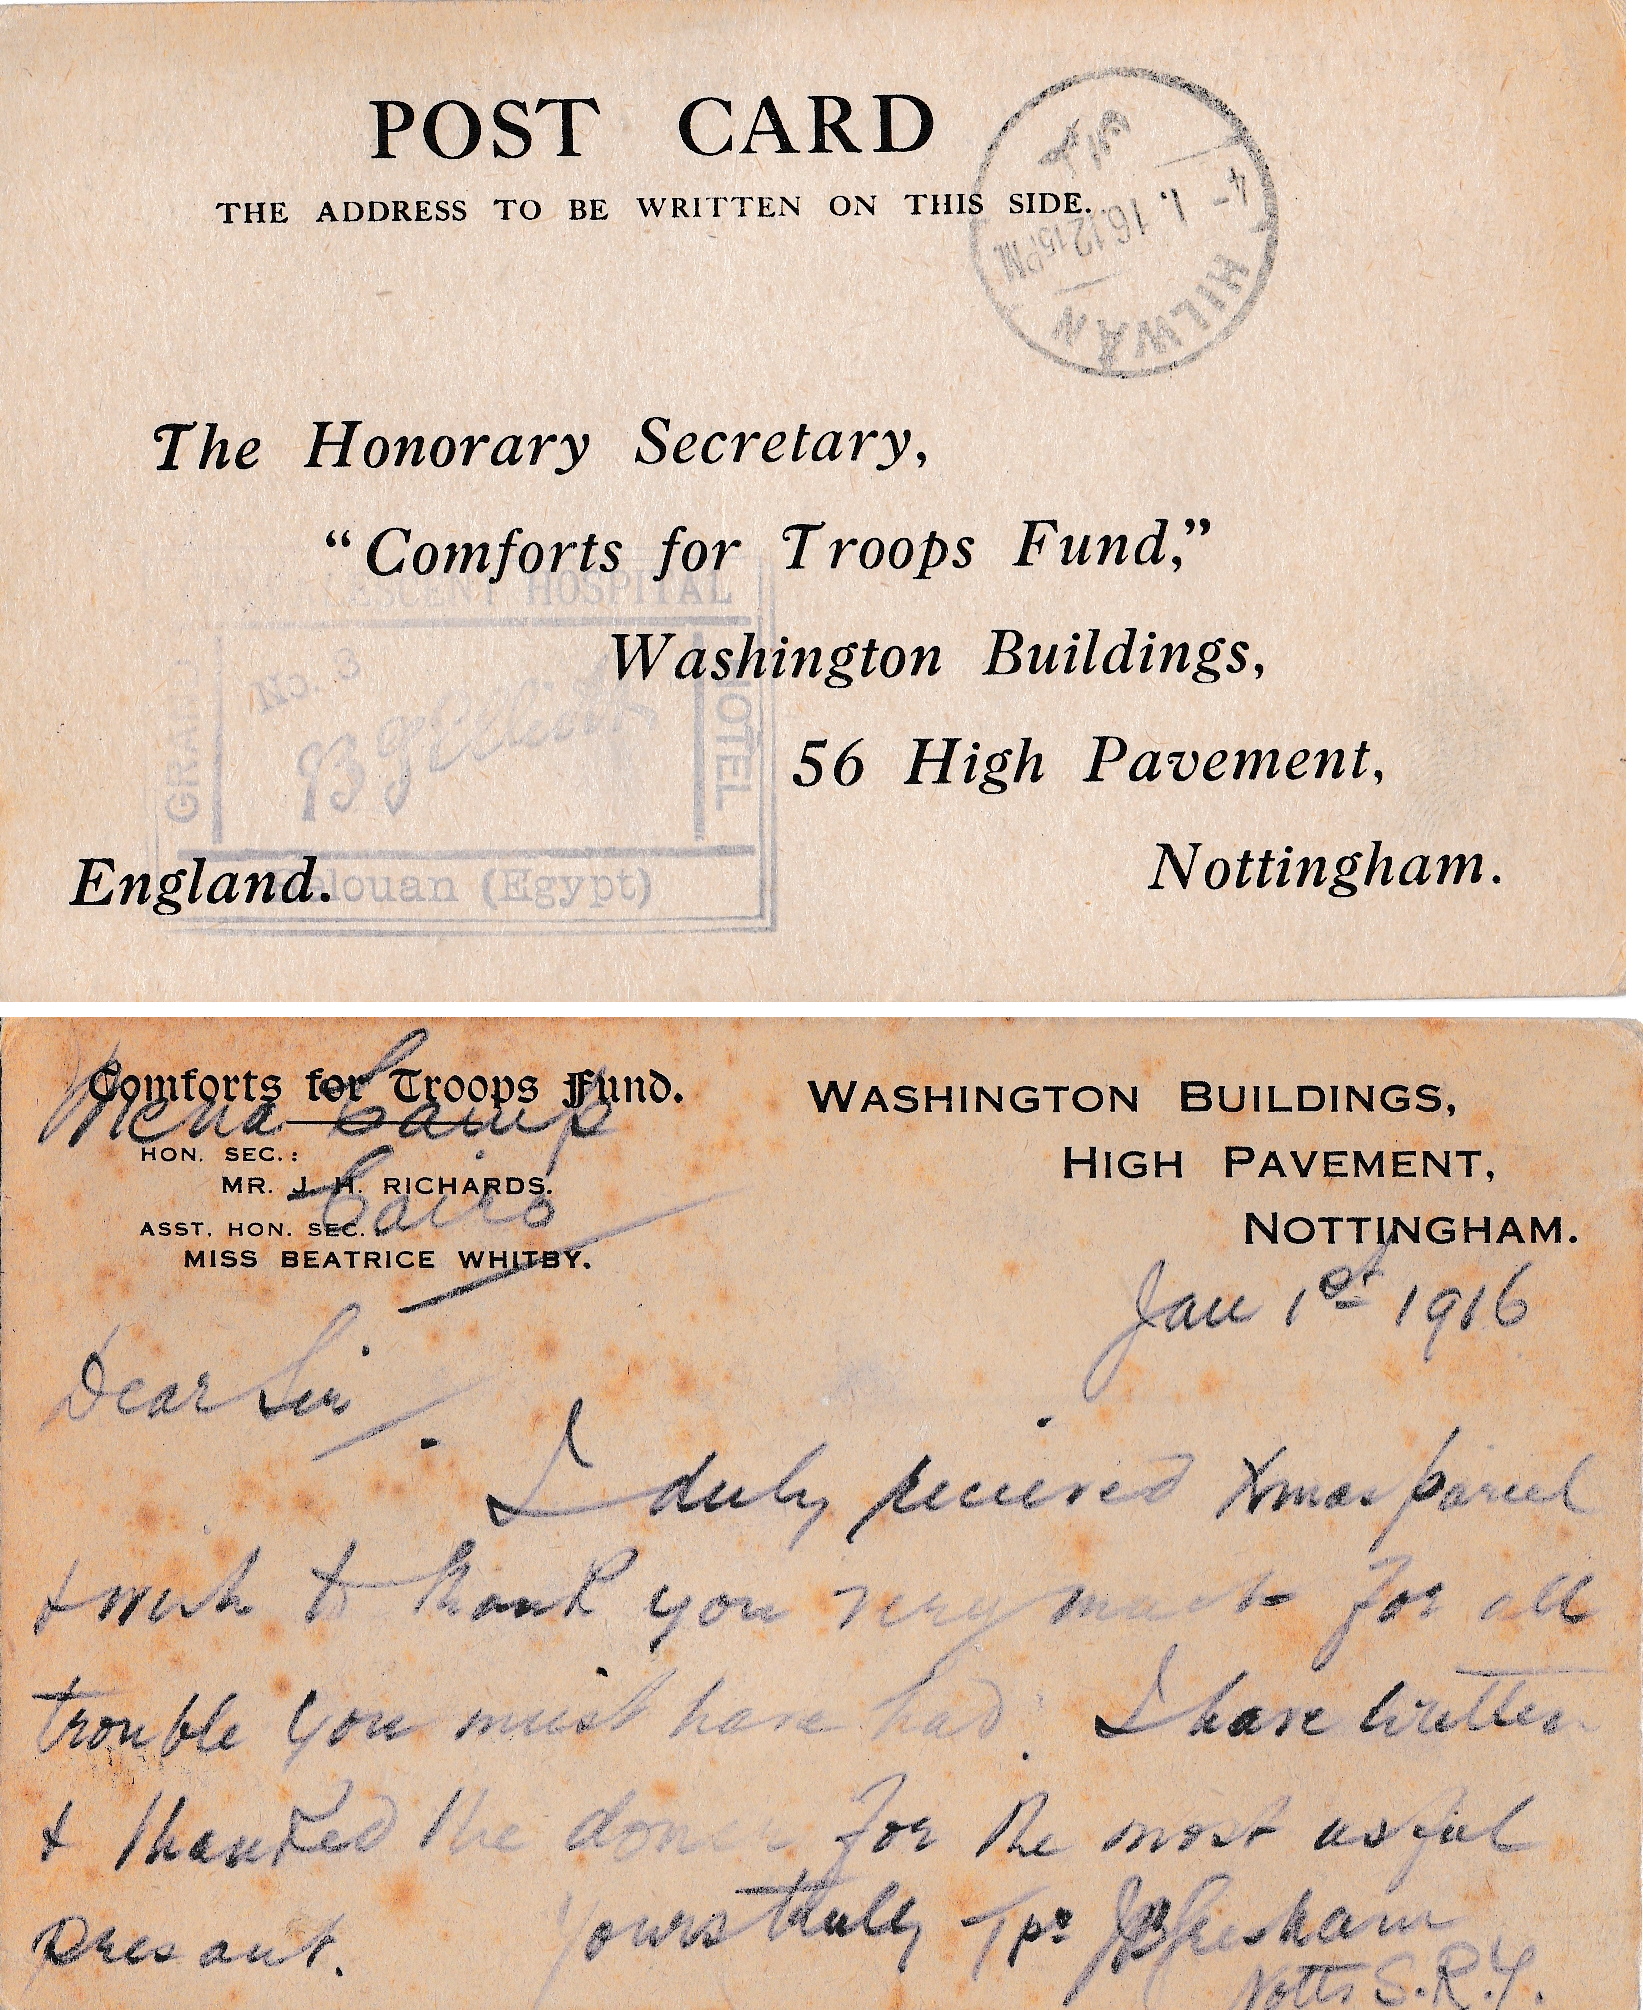 POST CARD
THE ADDRESS TO BE WRITTEN ON THIS SIDE.
4 - 1. 16. 12 15 PM
HILWAN
The Honorary Secretary,
"Comforts for Troops Fund,"
Washington Buildings,
56 High Pavement,
Nottingham.
England.
ESCENT HOSPITAL
GRAND
HOTEL
No. 3
elouan (Egypt)
Comforts for Troops Fund.
Mena Camp
HON. SEC.:
MR. J. H. RICHARDS.
Cairo
ASST. HON. SEC.
MISS BEATRICE WHITBY.
WASHINGTON BUILDINGS,
HIGH PAVEMENT,
NOTTINGHAM.
Jan 1st 1916
Dear Sir
I duly recieved Xmas parcel
& wish to thank you very much for all
trouble you must have had. I have written
& thanked the donor for the most usful
Presant. Yours truly Tpr J B Gresham
Notts S.R.Y.